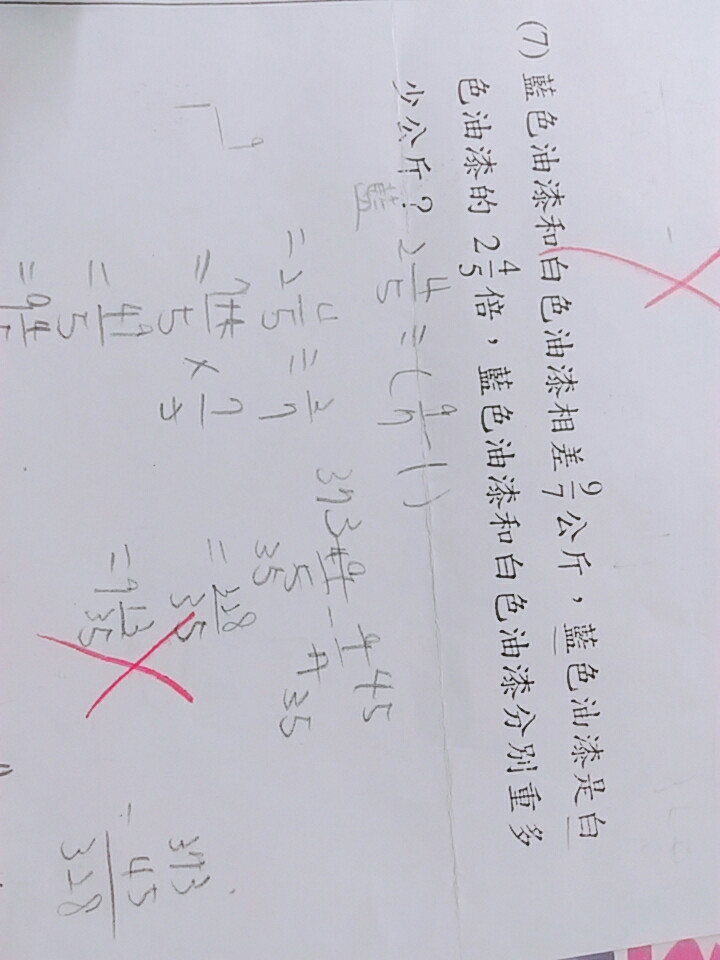 (7) 藍色油漆和白色油漆相差 9/7 公斤，藍色油漆是白
色油漆的 2 4/5 倍，藍色油漆和白色油漆分別重多
少公斤？
藍
2 4/5 ÷ (9/7 - 1)
= 2 4/5 ÷ 2/7
= 49/5
= 9 4/5
- 45
= 328/35
= 9 13/35
373
- 45
328